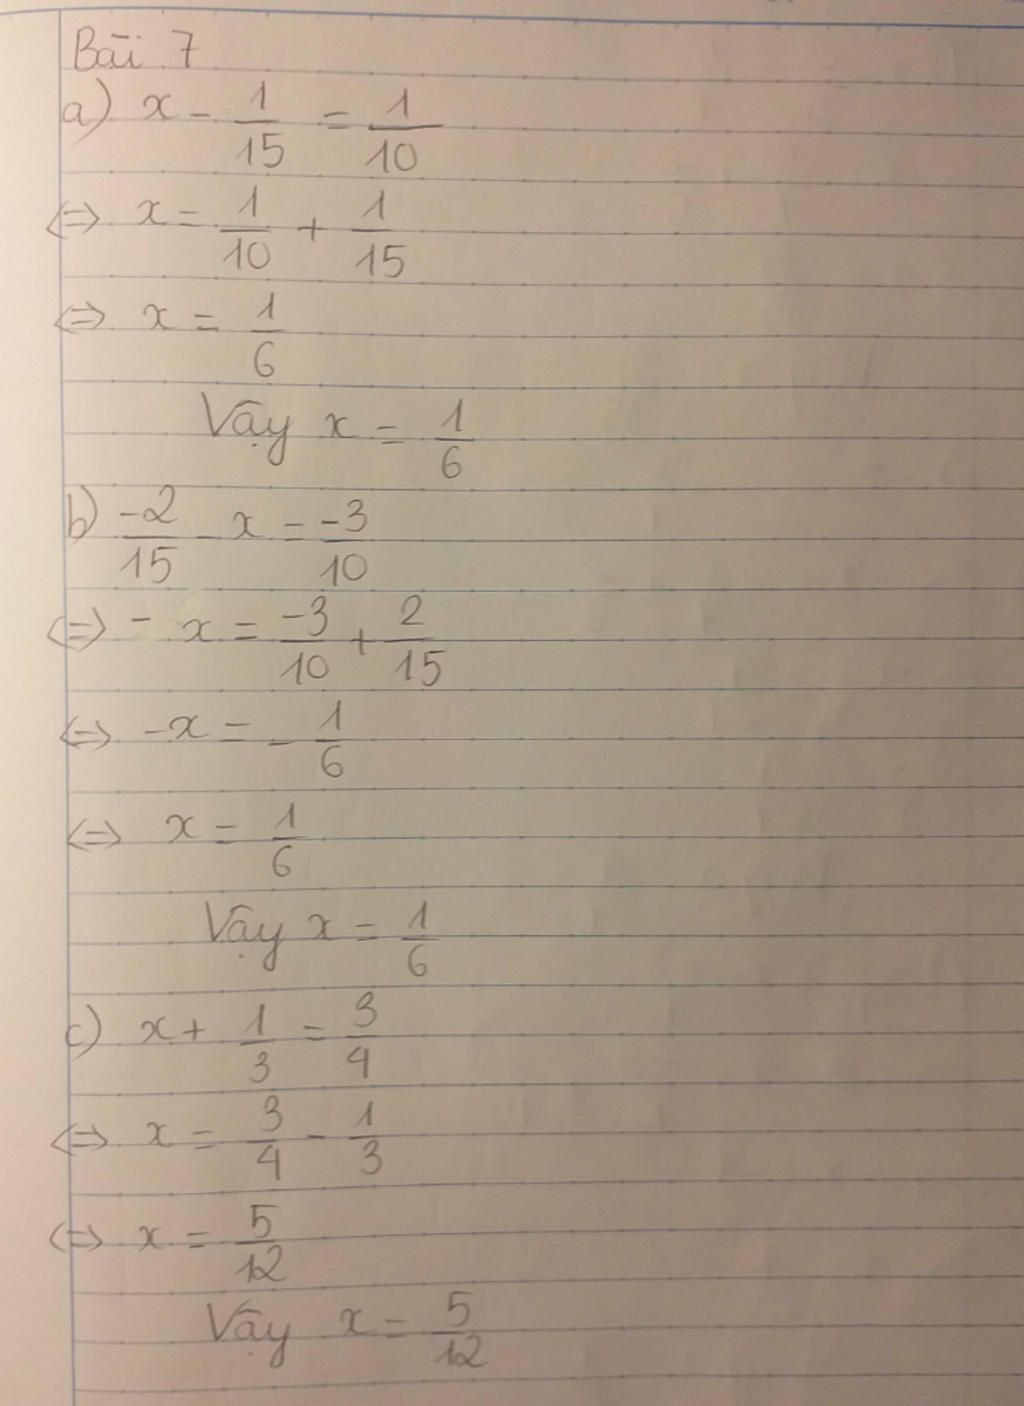 Bài 7
a) x - 1/15 = 1/10
<=> x = 1/10 + 1/15
<=> x = 1/6
Vậy x = 1/6
b) -2/15 - x = -3/10
<=> - x = -3/10 + 2/15
<=> -x = - 1/6
<=> x = 1/6
Vậy x = 1/6
c) x + 1/3 = 3/4
<=> x = 3/4 - 1/3
<=> x = 5/12
Vậy x = 5/12